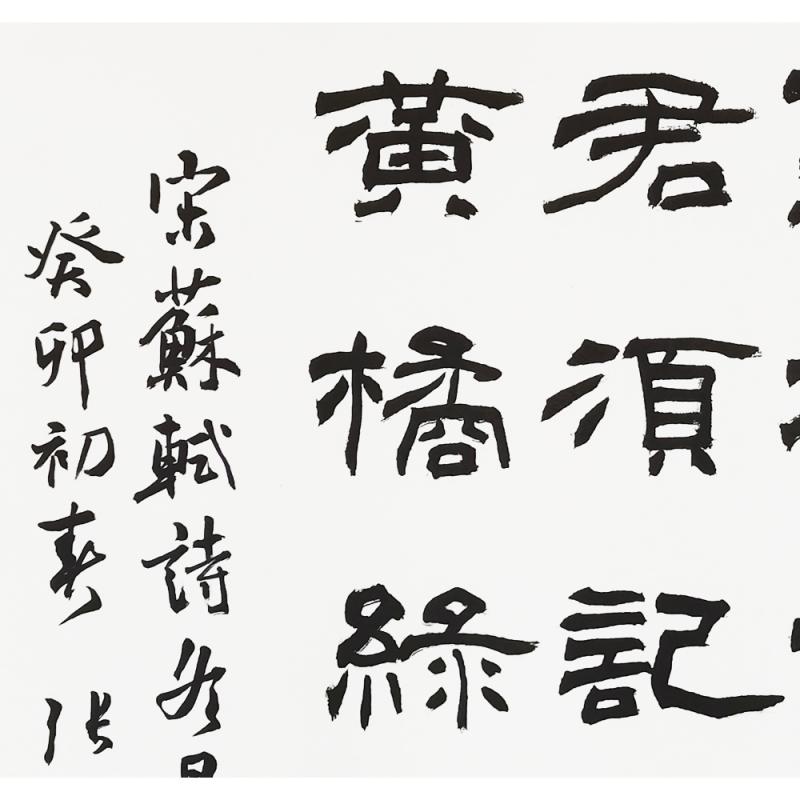 君須記
黃橘綠
宋蘇軾詩冬
癸卯初春 张